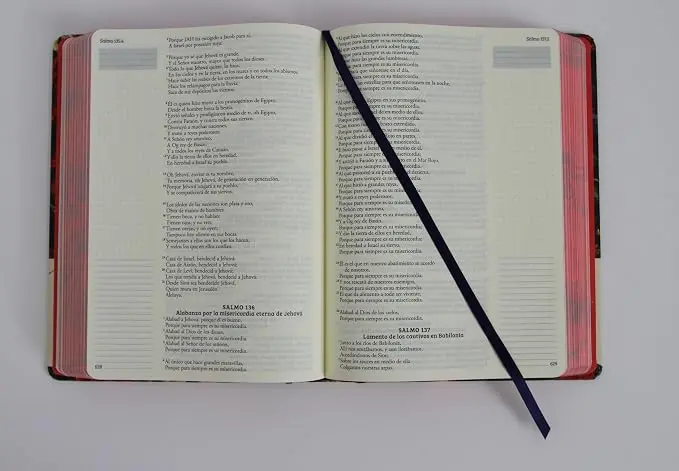 Salmo 135.4
⁴Porque JAH ha escogido a Jacob para sí,
A Israel por posesión suya.
⁵Porque yo sé que Jehová es grande,
Y el Señor nuestro, mayor que todos los dioses.
⁶Todo lo que Jehová quiere, lo hace,
En los cielos y en la tierra, en los mares y en todos los abismos.
⁷Hace subir las nubes de los extremos de la tierra;
Hace los relámpagos para la lluvia;
Saca de sus depósitos los vientos.
⁸Él es quien hizo morir a los primogénitos de Egipto,
Desde el hombre hasta la bestia.
⁹Envió señales y prodigios en medio de ti, oh Egipto,
Contra Faraón, y contra todos sus siervos.
¹⁰Destruyó a muchas naciones,
Y mató a reyes poderosos;
¹¹A Sehón rey amorreo,
A Og rey de Basán,
Y a todos los reyes de Canaán.
¹²Y dio la tierra de ellos en heredad,
En heredad a Israel su pueblo.
¹³Oh Jehová, eterno es tu nombre;
Tu memoria, oh Jehová, de generación en generación.
¹⁴Porque Jehová juzgará a su pueblo,
Y se compadecerá de sus siervos.
¹⁵Los ídolos de las naciones son plata y oro,
Obra de manos de hombres.
¹⁶Tienen boca, y no hablan;
Tienen ojos, y no ven;
¹⁷Tienen orejas, y no oyen;
Tampoco hay aliento en sus bocas.
¹⁸Semejantes a ellos son los que los hacen,
Y todos los que en ellos confían.
¹⁹Casa de Israel, bendecid a Jehová;
Casa de Aarón, bendecid a Jehová;
²⁰Casa de Leví, bendecid a Jehová;
Los que teméis a Jehová, bendecid a Jehová.
²¹Desde Sion sea bendecido Jehová,
Quien mora en Jerusalén.
Aleluya.
SALMO 136
Alabanza por la misericordia eterna de Jehová
¹Alabad a Jehová, porque él es bueno,
Porque para siempre es su misericordia.
²Alabad al Dios de los dioses,
Porque para siempre es su misericordia.
³Alabad al Señor de los señores,
Porque para siempre es su misericordia.
⁴Al único que hace grandes maravillas,
Porque para siempre es su misericordia.
628
Salmo 137.3
⁵Al que hizo los cielos con entendimiento,
Porque para siempre es su misericordia.
⁶Al que extendió la tierra sobre las aguas,
Porque para siempre es su misericordia.
hizo las grandes lumbreras,
Porque para siempre es su misericordia.
para que señorease en el día,
Porque para siempre es su misericordia.
las estrellas para que señoreasen en la noche,
Porque para siempre es su misericordia.
¹⁰Al que Egipto en sus primogénitos,
Porque para siempre es su misericordia.
Al que de en medio de ellos,
Porque para siempre es su misericordia.
Con mano brazo extendido,
Porque para siempre es su misericordia.
¹³Al que dividió en partes,
Porque para siempre es su misericordia.
E hizo pasar a Israel por en medio de él,
Porque para siempre es su misericordia.
Faraón y a en el Mar Rojo,
Porque para siempre es su misericordia.
¹⁶Al que pastoreó a su pueblo
Porque para siempre es su misericordia.
¹⁷Al que hirió a grandes reyes,
Porque para siempre es su misericordia.
¹⁸Y mató a reyes poderosos,
Porque para siempre es su misericordia.
¹⁹A Sehón rey amorreo,
Porque para siempre es su misericordia.
²⁰Y a Og rey de Basán,
Porque para siempre es su misericordia.
²¹Y dio la tierra de ellos en heredad,
Porque para siempre es su misericordia.
²²En heredad a Israel su siervo,
Porque para siempre es su misericordia.
²³Él es el que en nuestro abatimiento se acordó
de nosotros,
Porque para siempre es su misericordia.
²⁴Y nos rescató de nuestros enemigos,
Porque para siempre es su misericordia.
²⁵El que da alimento a todo ser viviente,
Porque para siempre es su misericordia.
²⁶Alabad al Dios de los cielos,
Porque para siempre es su misericordia.
SALMO 137
Lamento de los cautivos en Babilonia
¹Junto a los ríos de Babilonia,
Allí nos sentábamos, y aun llorábamos,
Acordándonos de Sion.
²Sobre los sauces en medio de ella
Colgamos nuestras arpas.
629